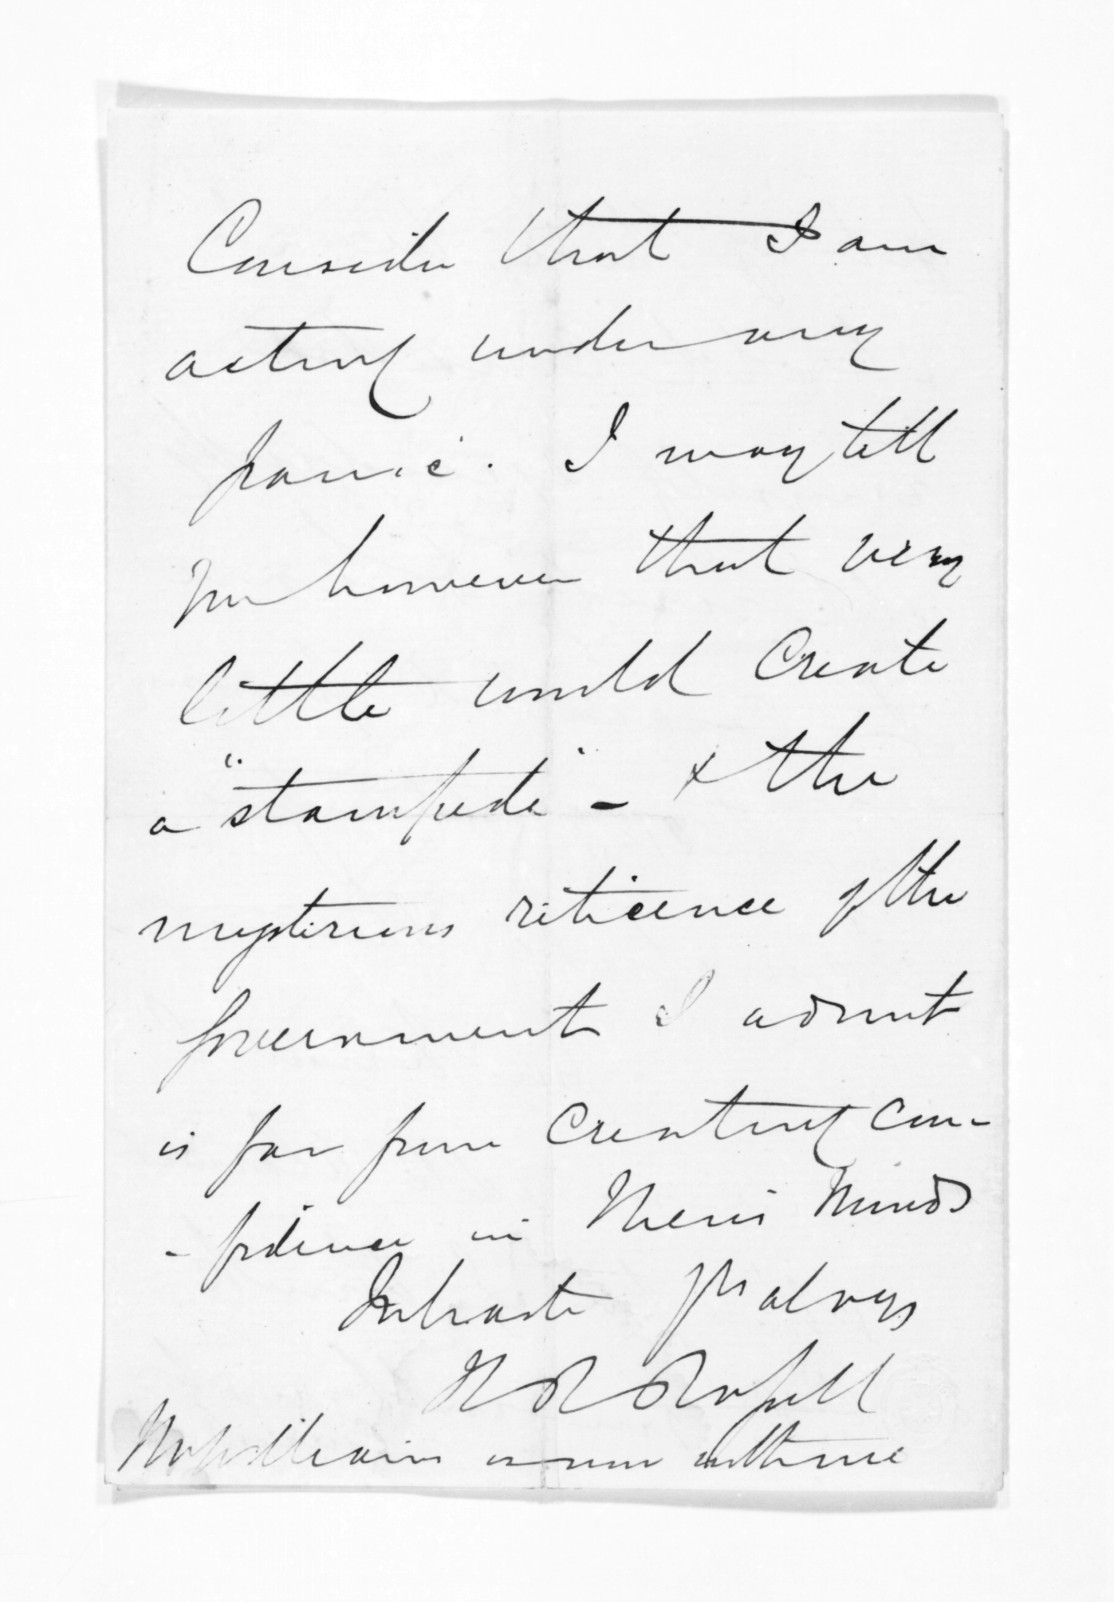 Consider that I am
acting under any
panic. I may tell
you however that very
little would create
a "stampede" - & the
mysterious reticence of the
Government I admit
is far from creating con-
-fidence in Men's Minds
In haste Yrs always
H R Russell
is now with me